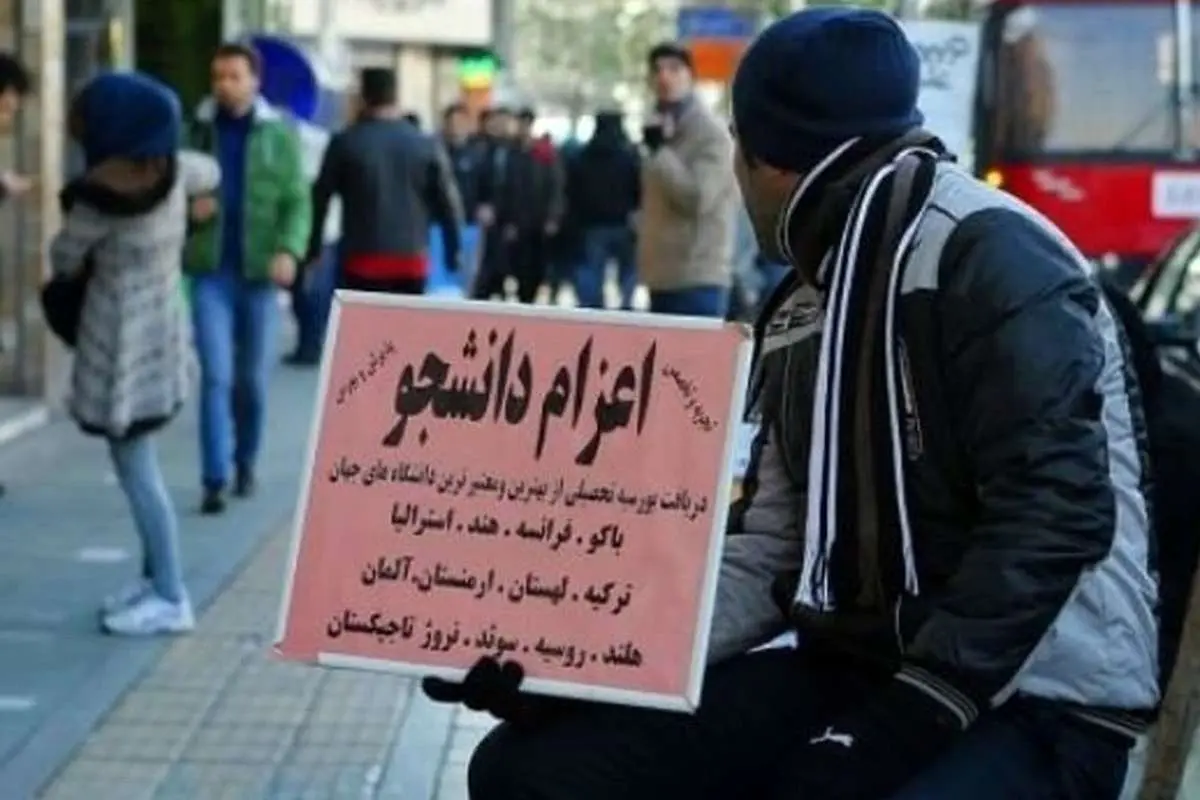 اعزام دانشجو
دریافت بورسیه تحصیلی از بهترین و معتبر ترین دانشگاه های جهان
باکو . فرانسه . هند . استرالیا
ترکیه . لهستان . ارمنستان . آلمان
هلند . روسیه . سوئد . نروژ تاجیکستان